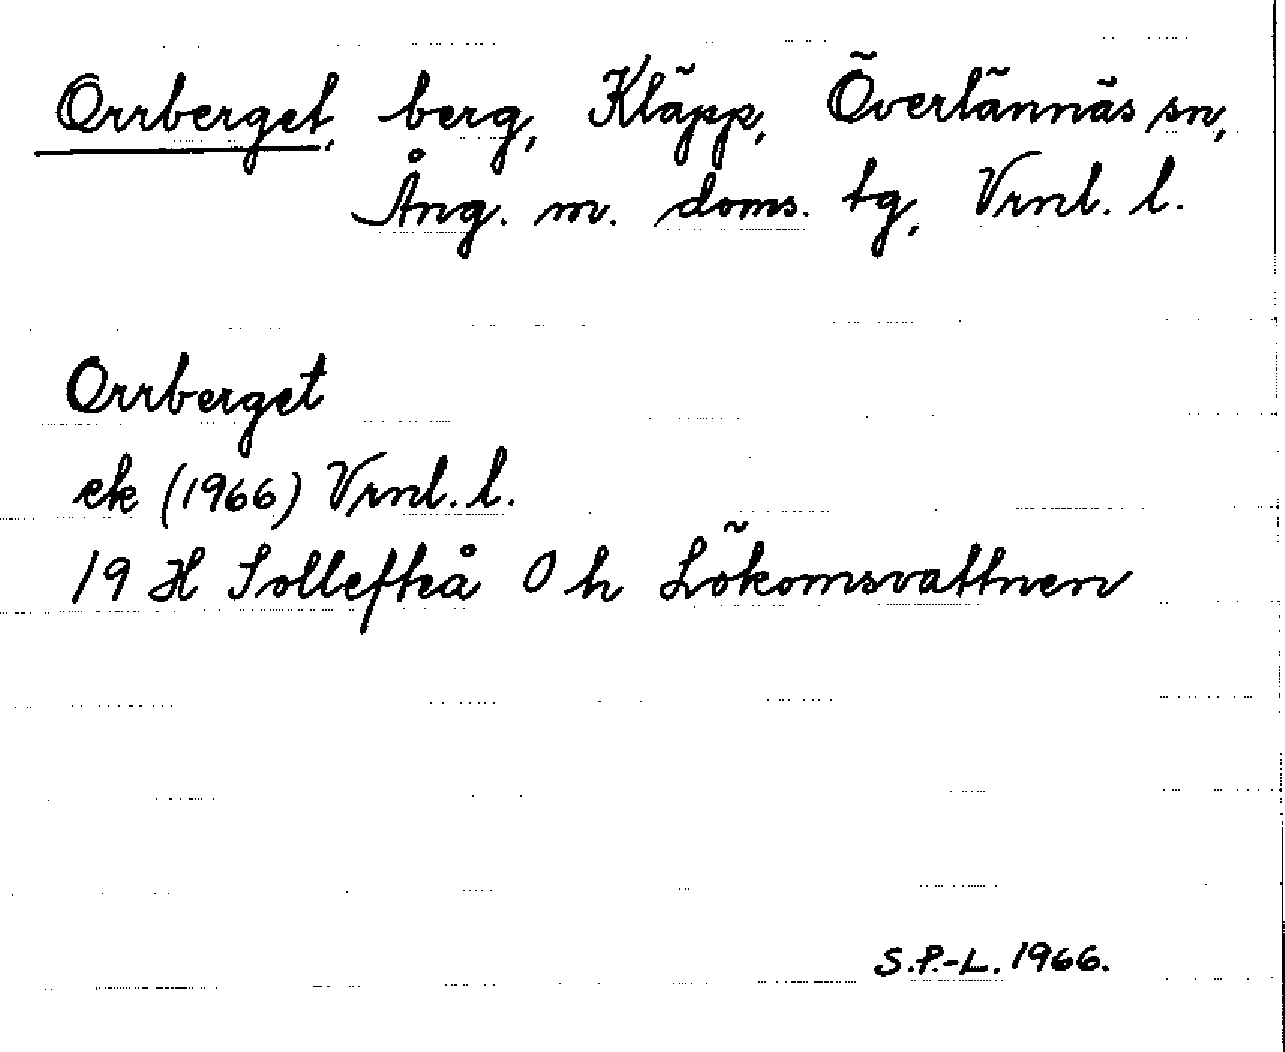 Orrberget, berg, Kläpp, Överlännäs sn,
Ång. m. doms. tg, Vrnl. l.
Orrberget
ek (1966) Vrnl. l.
19 H Sollefteå 0 h Lökomsvattnen
S.P.-L. 1966.